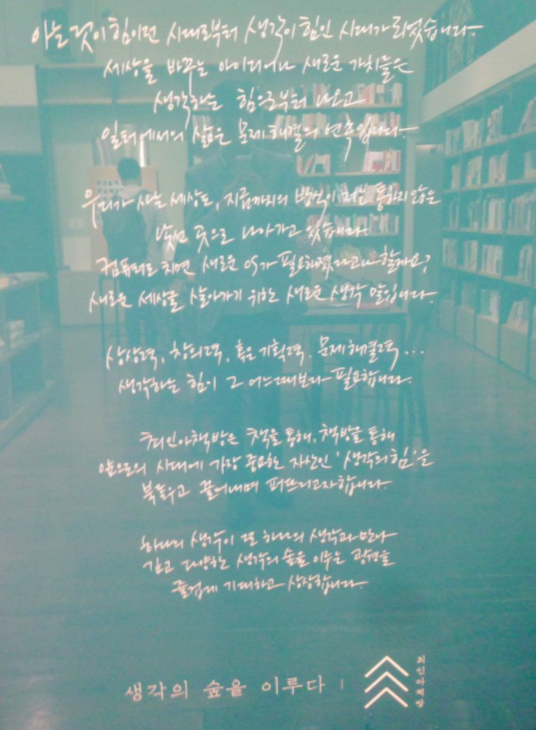 아는 것이 힘이던 시대로부터 생각이 힘인 시대가 되었습니다.
세상을 바꾸는 아이디어나 새로운 가치들은
생각하는 힘으로부터 나오고
일터에서의 삶은 문제해결의 연속입니다.
우리가 사는 세상도, 지금까지의 방식이 더는 통하지 않은
낯선 곳으로 나아가고 있습니다.
컴퓨터로 치면 새로운 OS가 필요해졌다고나 할까요?
새로운 세상을 살아가기 위한 새로운 생각 말입니다.
상상력, 창의력, 혹은 기획력, 문제해결력...
생각하는 힘이 그 어느때보다 필요합니다.
최인아책방은 책을 통해, 책방을 통해
앞으로의 시대에 가장 중요한 자산인 '생각의 힘'을
북돋우고 끌어내며 퍼뜨리고자합니다.
하나의 생각이 또 하나의 생각과 만나
깊고 다양한 생각의 숲을 이루는 광경을
즐겁게 기대하고 상상합니다.
생각의 숲을 이루다 |
최인아책방